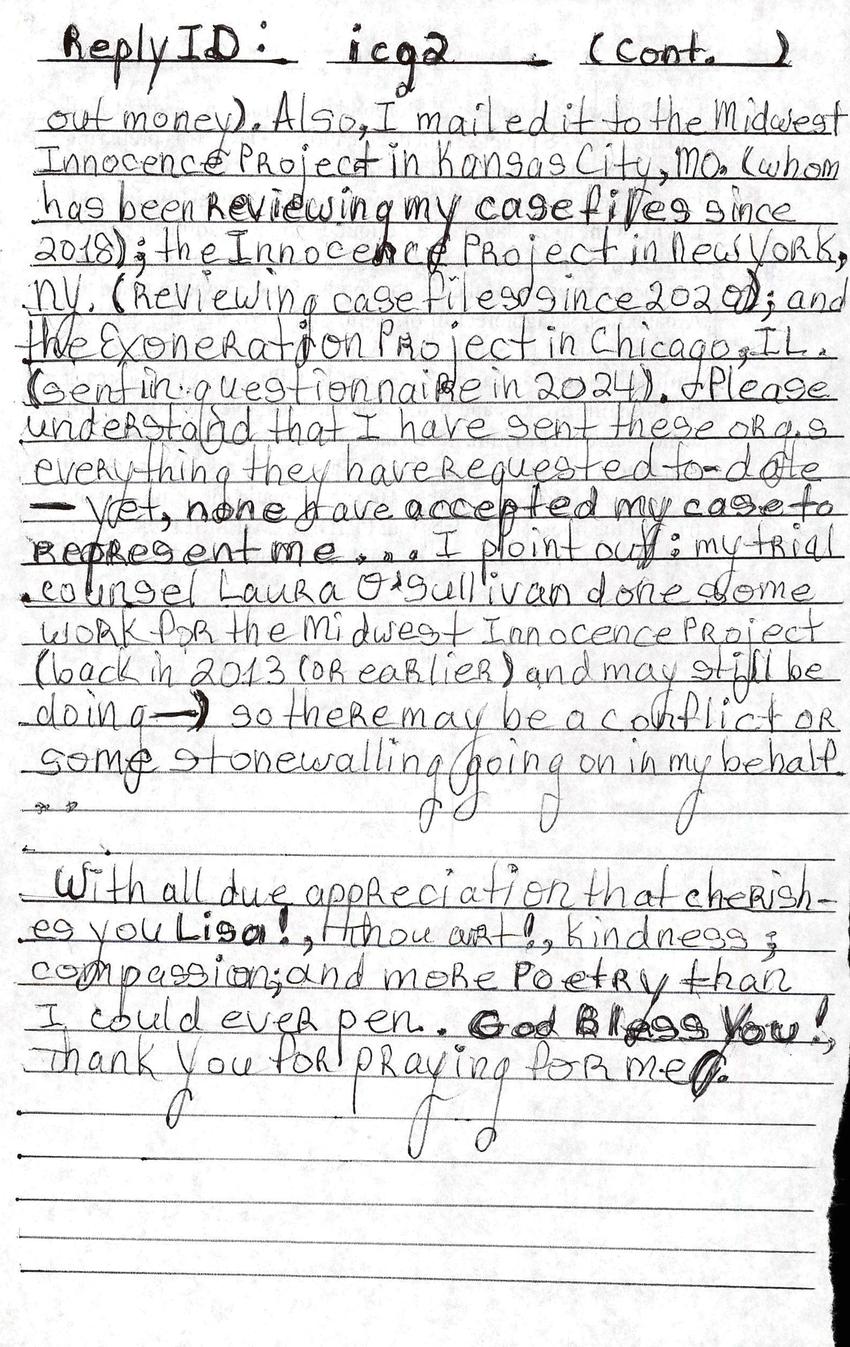 Reply ID: icg2 (cont. )
out money). Also, I mailed it to the Midwest
Innocence Project in Kansas City, MO. (whom
has been Reviewing my case files since
2018); the Innocence Project in New York,
NY. (Reviewing case files since 2020); and
the Exoneration Project in Chicago, IL.
(sent in questionnaire in 2024). Please
understand that I have sent these orgs
everything they have requested to-date
— yet, none have accepted my case to
Represent me... I point out: my trial
counsel Laura O'Sullivan done some
work for the Midwest Innocence Project
(back in 2013 (or earlier) and may still be
doing—) so there may be a conflict or
some stonewalling going on in my behalf
..
With all due appreciation that cherish-
es you Lisa!, thou art!, kindness;
compassion; and more Poetry than
I could ever pen. God Bless You!,
Thank you for praying for me.